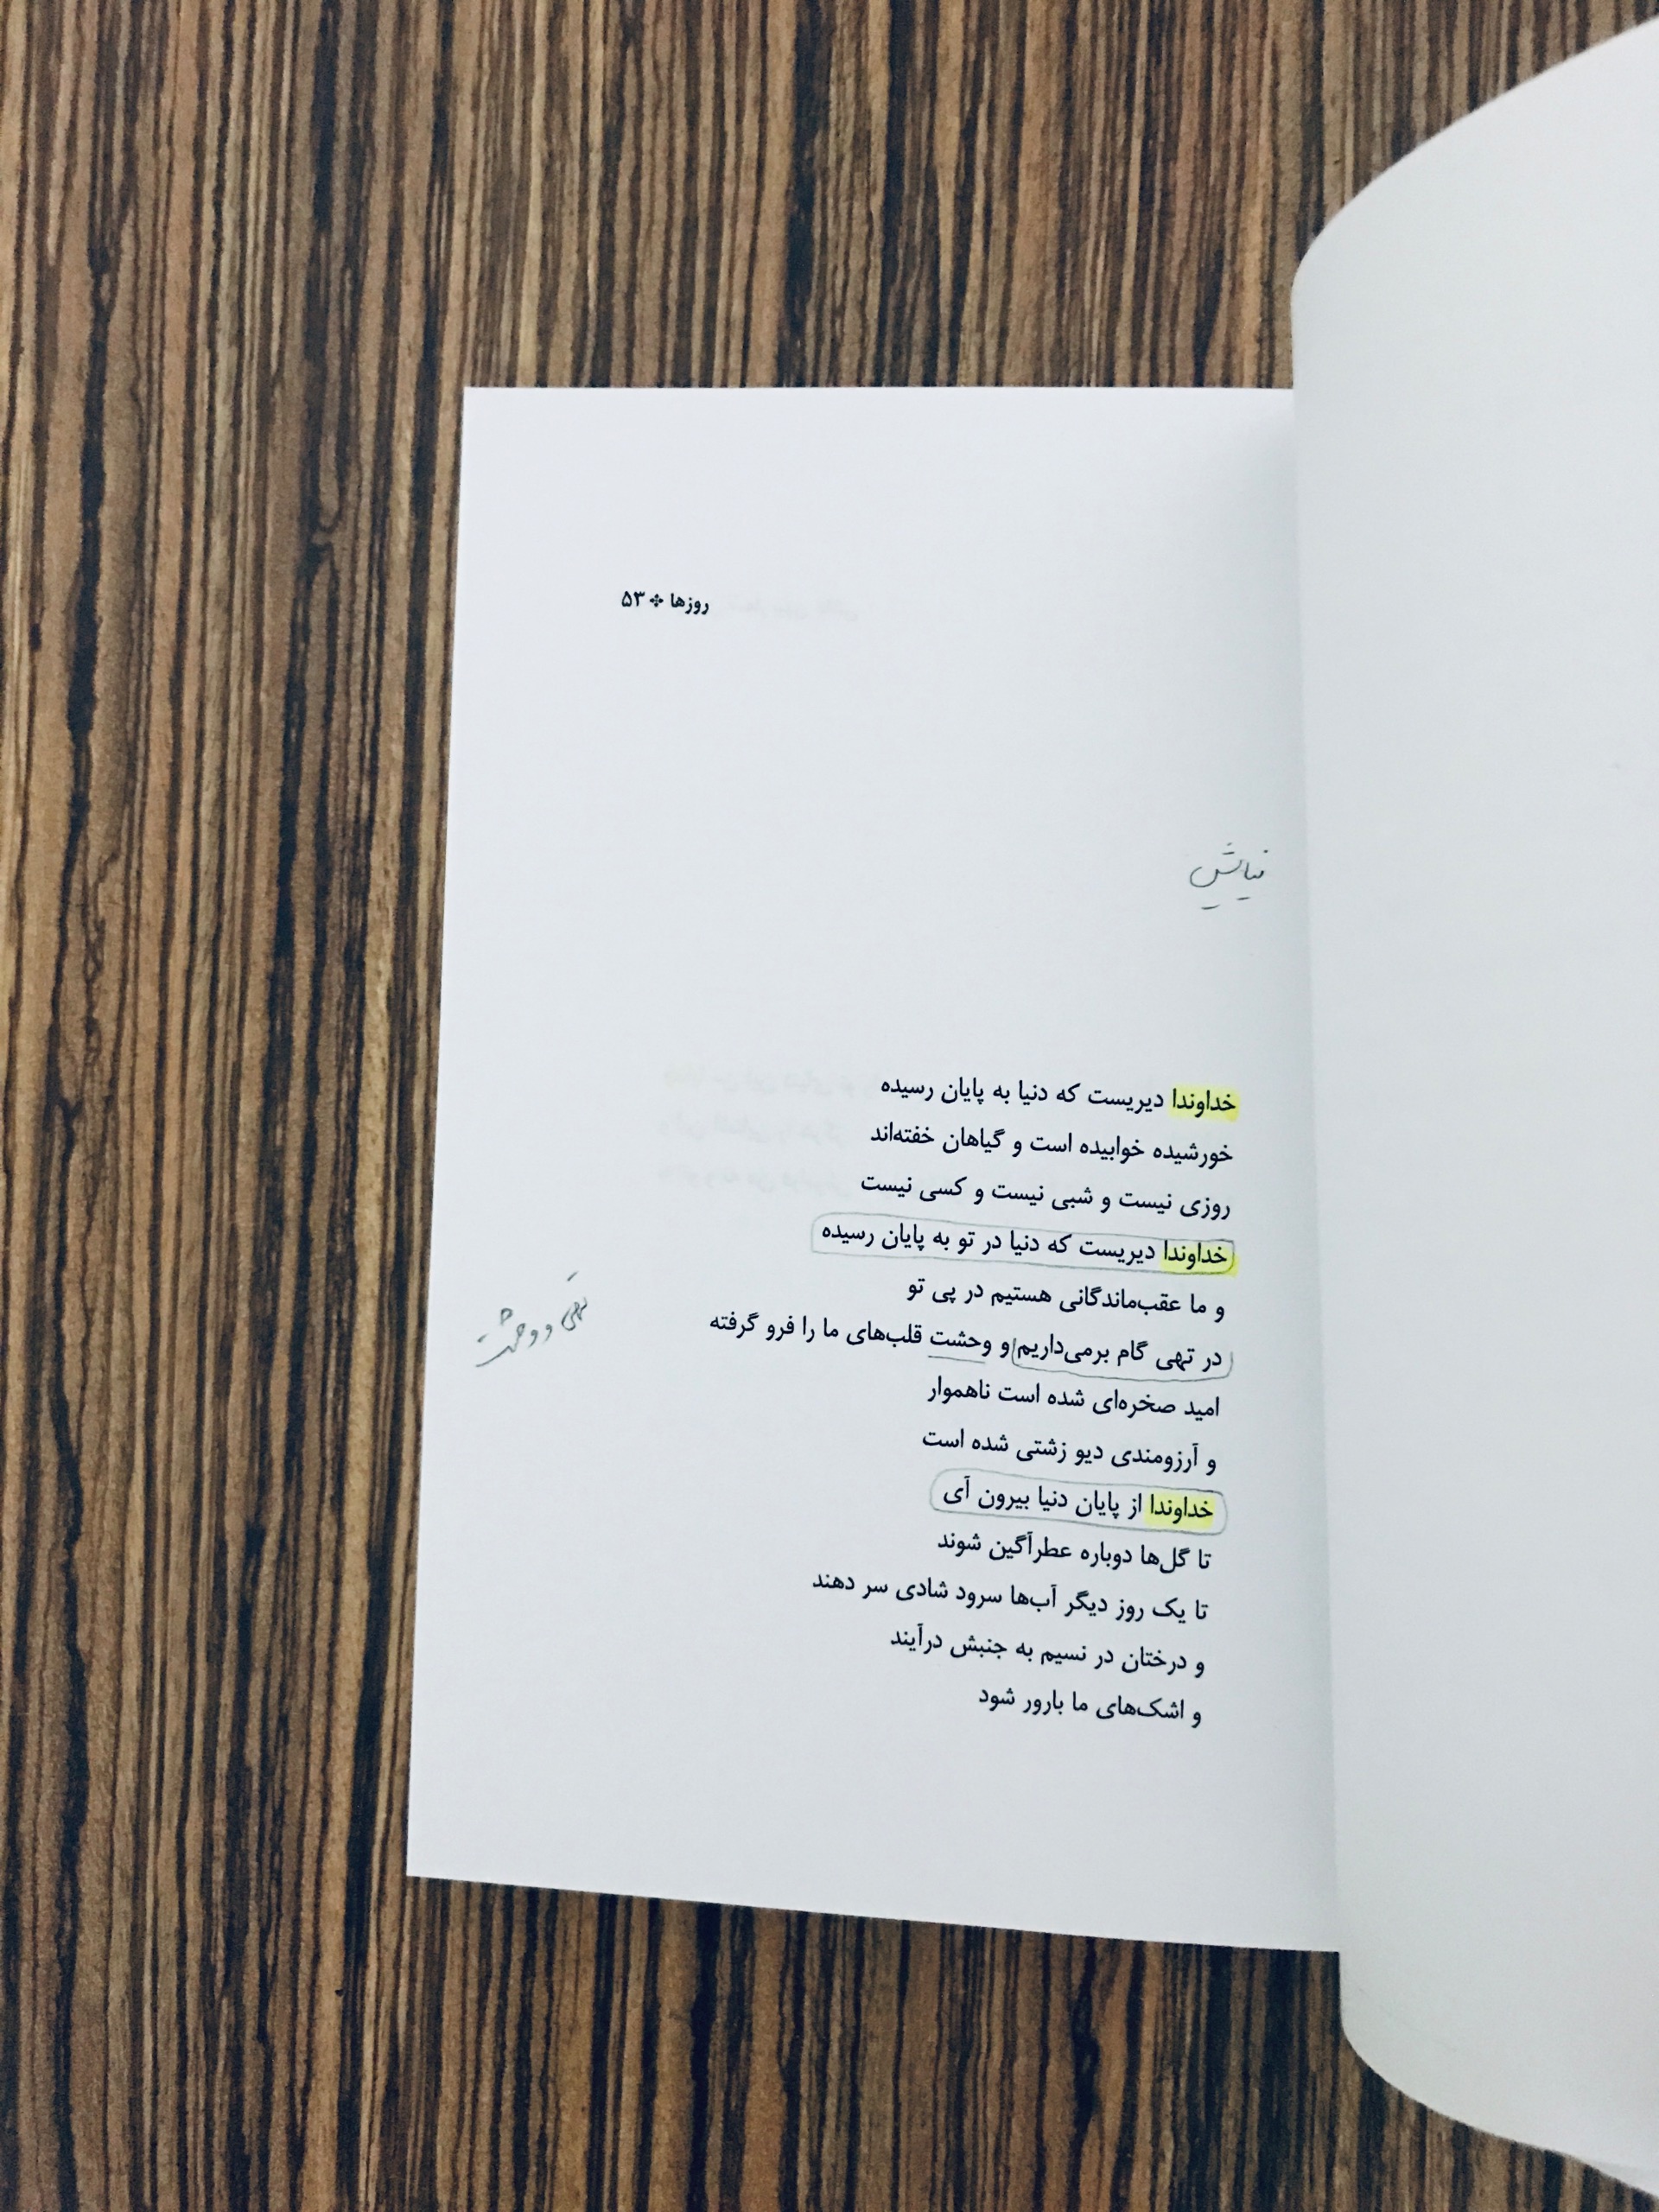 روزها ❖ ۵۳
نیایش
خداوندا دیریست که دنیا به پایان رسیده
خورشیده خوابیده است و گیاهان خفته‌اند
روزی نیست و شبی نیست و کسی نیست
خداوندا دیریست که دنیا در تو به پایان رسیده
و ما عقب‌ماندگانی هستیم در پی تو
در تهی گام برمی‌داریم و وحشت قلب‌های ما را فرو گرفته
تهی و وحشت
امید صخره‌ای شده است ناهموار
و آرزومندی دیو زشتی شده است
خداوندا از پایان دنیا بیرون آی
تا گل‌ها دوباره عطرآگین شوند
تا یک روز دیگر آب‌ها سرود شادی سر دهند
و درختان در نسیم به جنبش درآیند
و اشک‌های ما بارور شود